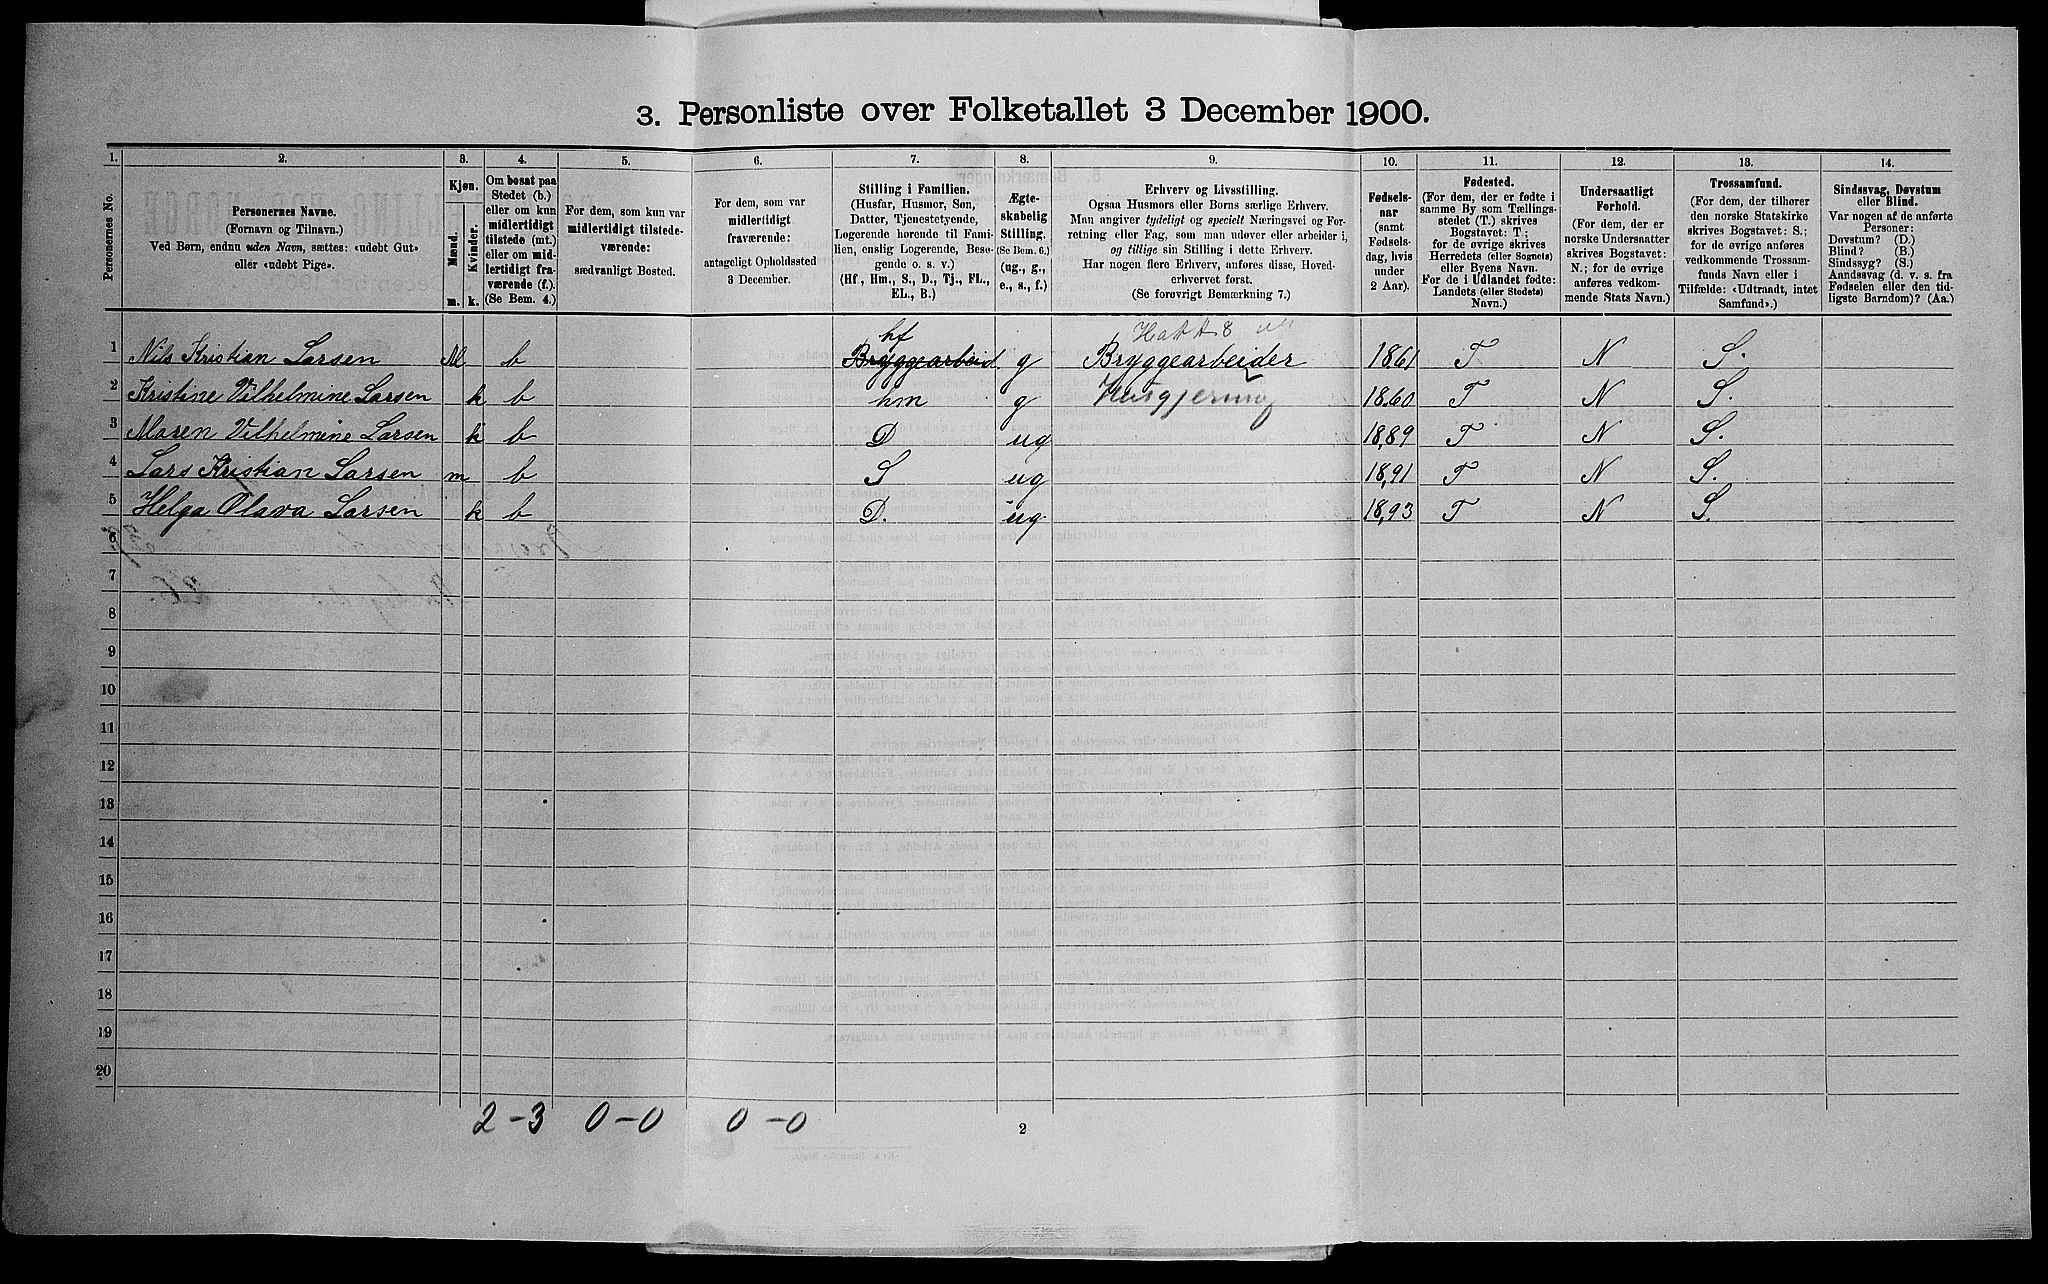 3. Personliste over Folketallet 3 December 1900.
1. 2. 3. 4. 5. 6. 7. 8. 9. 10. 11. 12. 13. 14.
Personernes No.
Personernes Navne.
(Fornavn og Tilnavn.)
Ved Børn, endnu uden Navn, sættes: «udøbt Gut»
eller «udøbt Pige».
Kjøn.
Mænd. Kvinder.
m. k.
Om bosat paa
Stedet (b.)
eller om kun
midlertidigt
tilstede (mt.)
eller om mid-
lertidigt fra-
værende (f.).
(Se Bem. 4.)
For dem, som kun var
midlertidigt tilstede-
værende:
sædvanligt Bosted.
For dem, som var
midlertidigt
fraværende:
antageligt Opholdssted
3 December.
Stilling i Familien.
(Husfar, Husmor, Søn,
Datter, Tjenestetyende,
Logerende hørende til Fami-
lien, enslig Logerende, Besø-
gende o. s. v.)
(Hf, Hm., S., D., Tj., FL.,
EL., B.)
Ægte-
skabelig
Stilling.
(Se Bem. 6.)
(ug., g.,
e., s., f.)
Erhverv og Livsstilling.
Ogsaa Husmors eller Børns særlige Erhverv.
Man angiver tydeligt og specielt Næringsvei og For-
retning eller Fag, som man udøver eller arbeider i,
og tillige sin Stilling i dette Erhverv.
Har nogen flere Erhverv, anføres disse, Hoved-
erhvervet først.
(Se forøvrigt Bemærkning 7.)
Fødsels-
aar
(samt
Fødsels-
dag, hvis
under
2 Aar).
Fødested.
(For dem, der er fødte i
samme By som Tællings-
stedet (T.) skrives
Bogstavet: T.;
for de øvrige skrives
Herredets (eller Sognets)
eller Byens Navn.
For de i Udlandet fødte:
Landets (eller Stedets)
Navn.)
Undersaatligt
Forhold.
(For dem, der er
norske Undersaatter
skrives Bogstavet:
N.; for de øvrige
anføres vedkom-
mende Stats Navn.)
Trossamfund.
(For dem, der tilhører
den norske Statskirke
skrives Bogstavet: S.;
for de øvrige anføres
vedkommende Trossam-
funds Navn eller i
Tilfælde: «Udtraadt, intet
Samfund».)
Sindssvag, Døvstum
eller Blind.
Var nogen af de anførte
Personer:
Døvstum? (D.)
Blind? (B.)
Sindssyg? (S.)
Aandssvag (d. v. s. fra
Fødselen eller den tid-
ligste Barndom)? (Aa.)
hf
1 Nils Kristian Larsen M b Bryggearbeid. g Bryggearbeider 1861 T N S.
2 Kristine Vilhelmine Larsen k b hm g Husgjerning 1860 T N S.
3 Maren Vilhelmine Larsen k b D ug 1889 T N S.
4 Lars Kristian Larsen m b S ug 1891 T N S.
5 Helga Olava Larsen k b D. ug 1893 T N S.
6
7
8
9
10
11
12
13
14
15
16
17
18
19
20
2-3 0-0 0-0
2